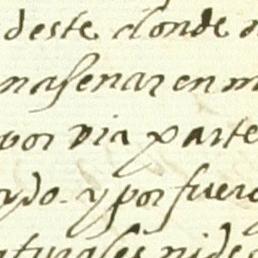 deste donde
nasenar en m
por via parte
rdo. y por fuero
turales ni de